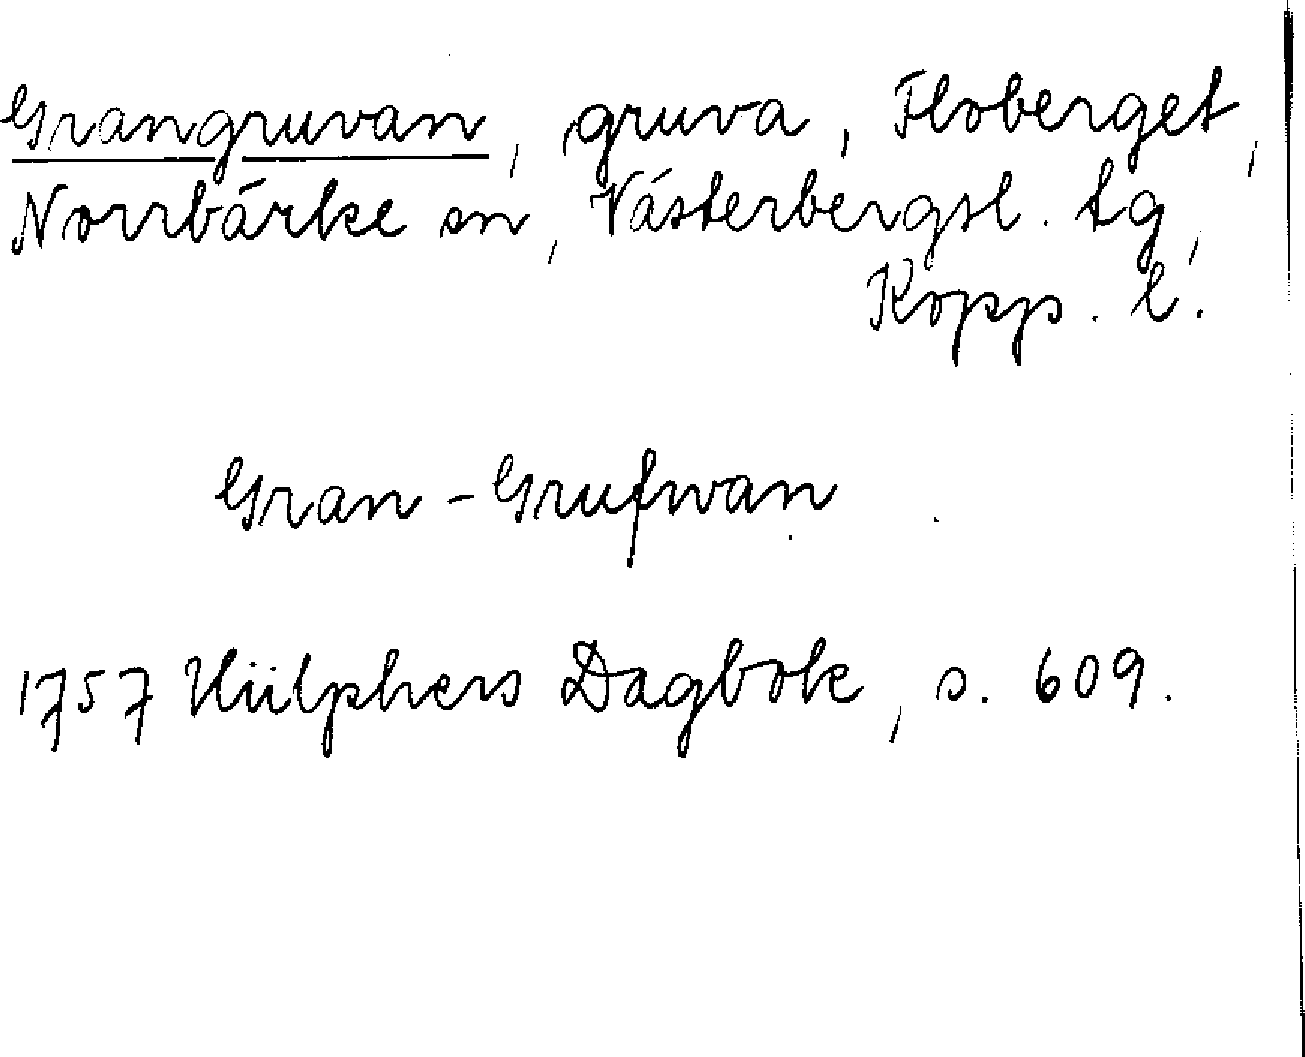 Grangruvan, gruva, Floberget,
Norrbärke sn, Västerbergsl. tg,
Kopp. l.
Gran-Grufwan
1757 Hülphers Dagbok, s. 609.